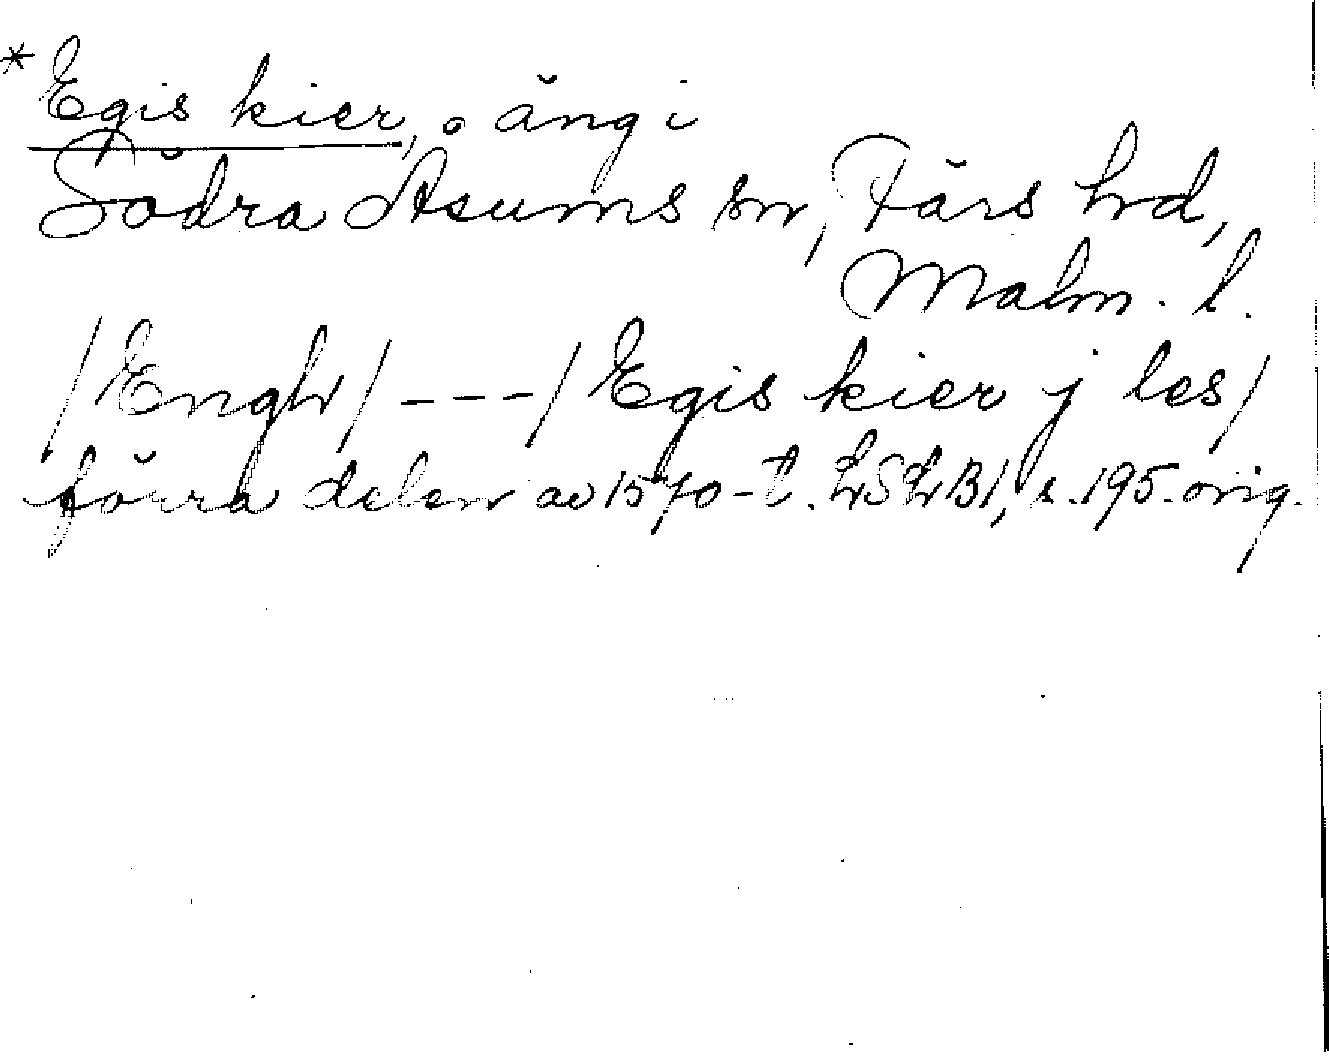 * Egis kier, äng i
Södra Åsums sn, Färs hd,
Malm. l.
/Engh/ --- / Egis kier j les/
förra delen av 1570-t. LSLB1, s. 195. orig.